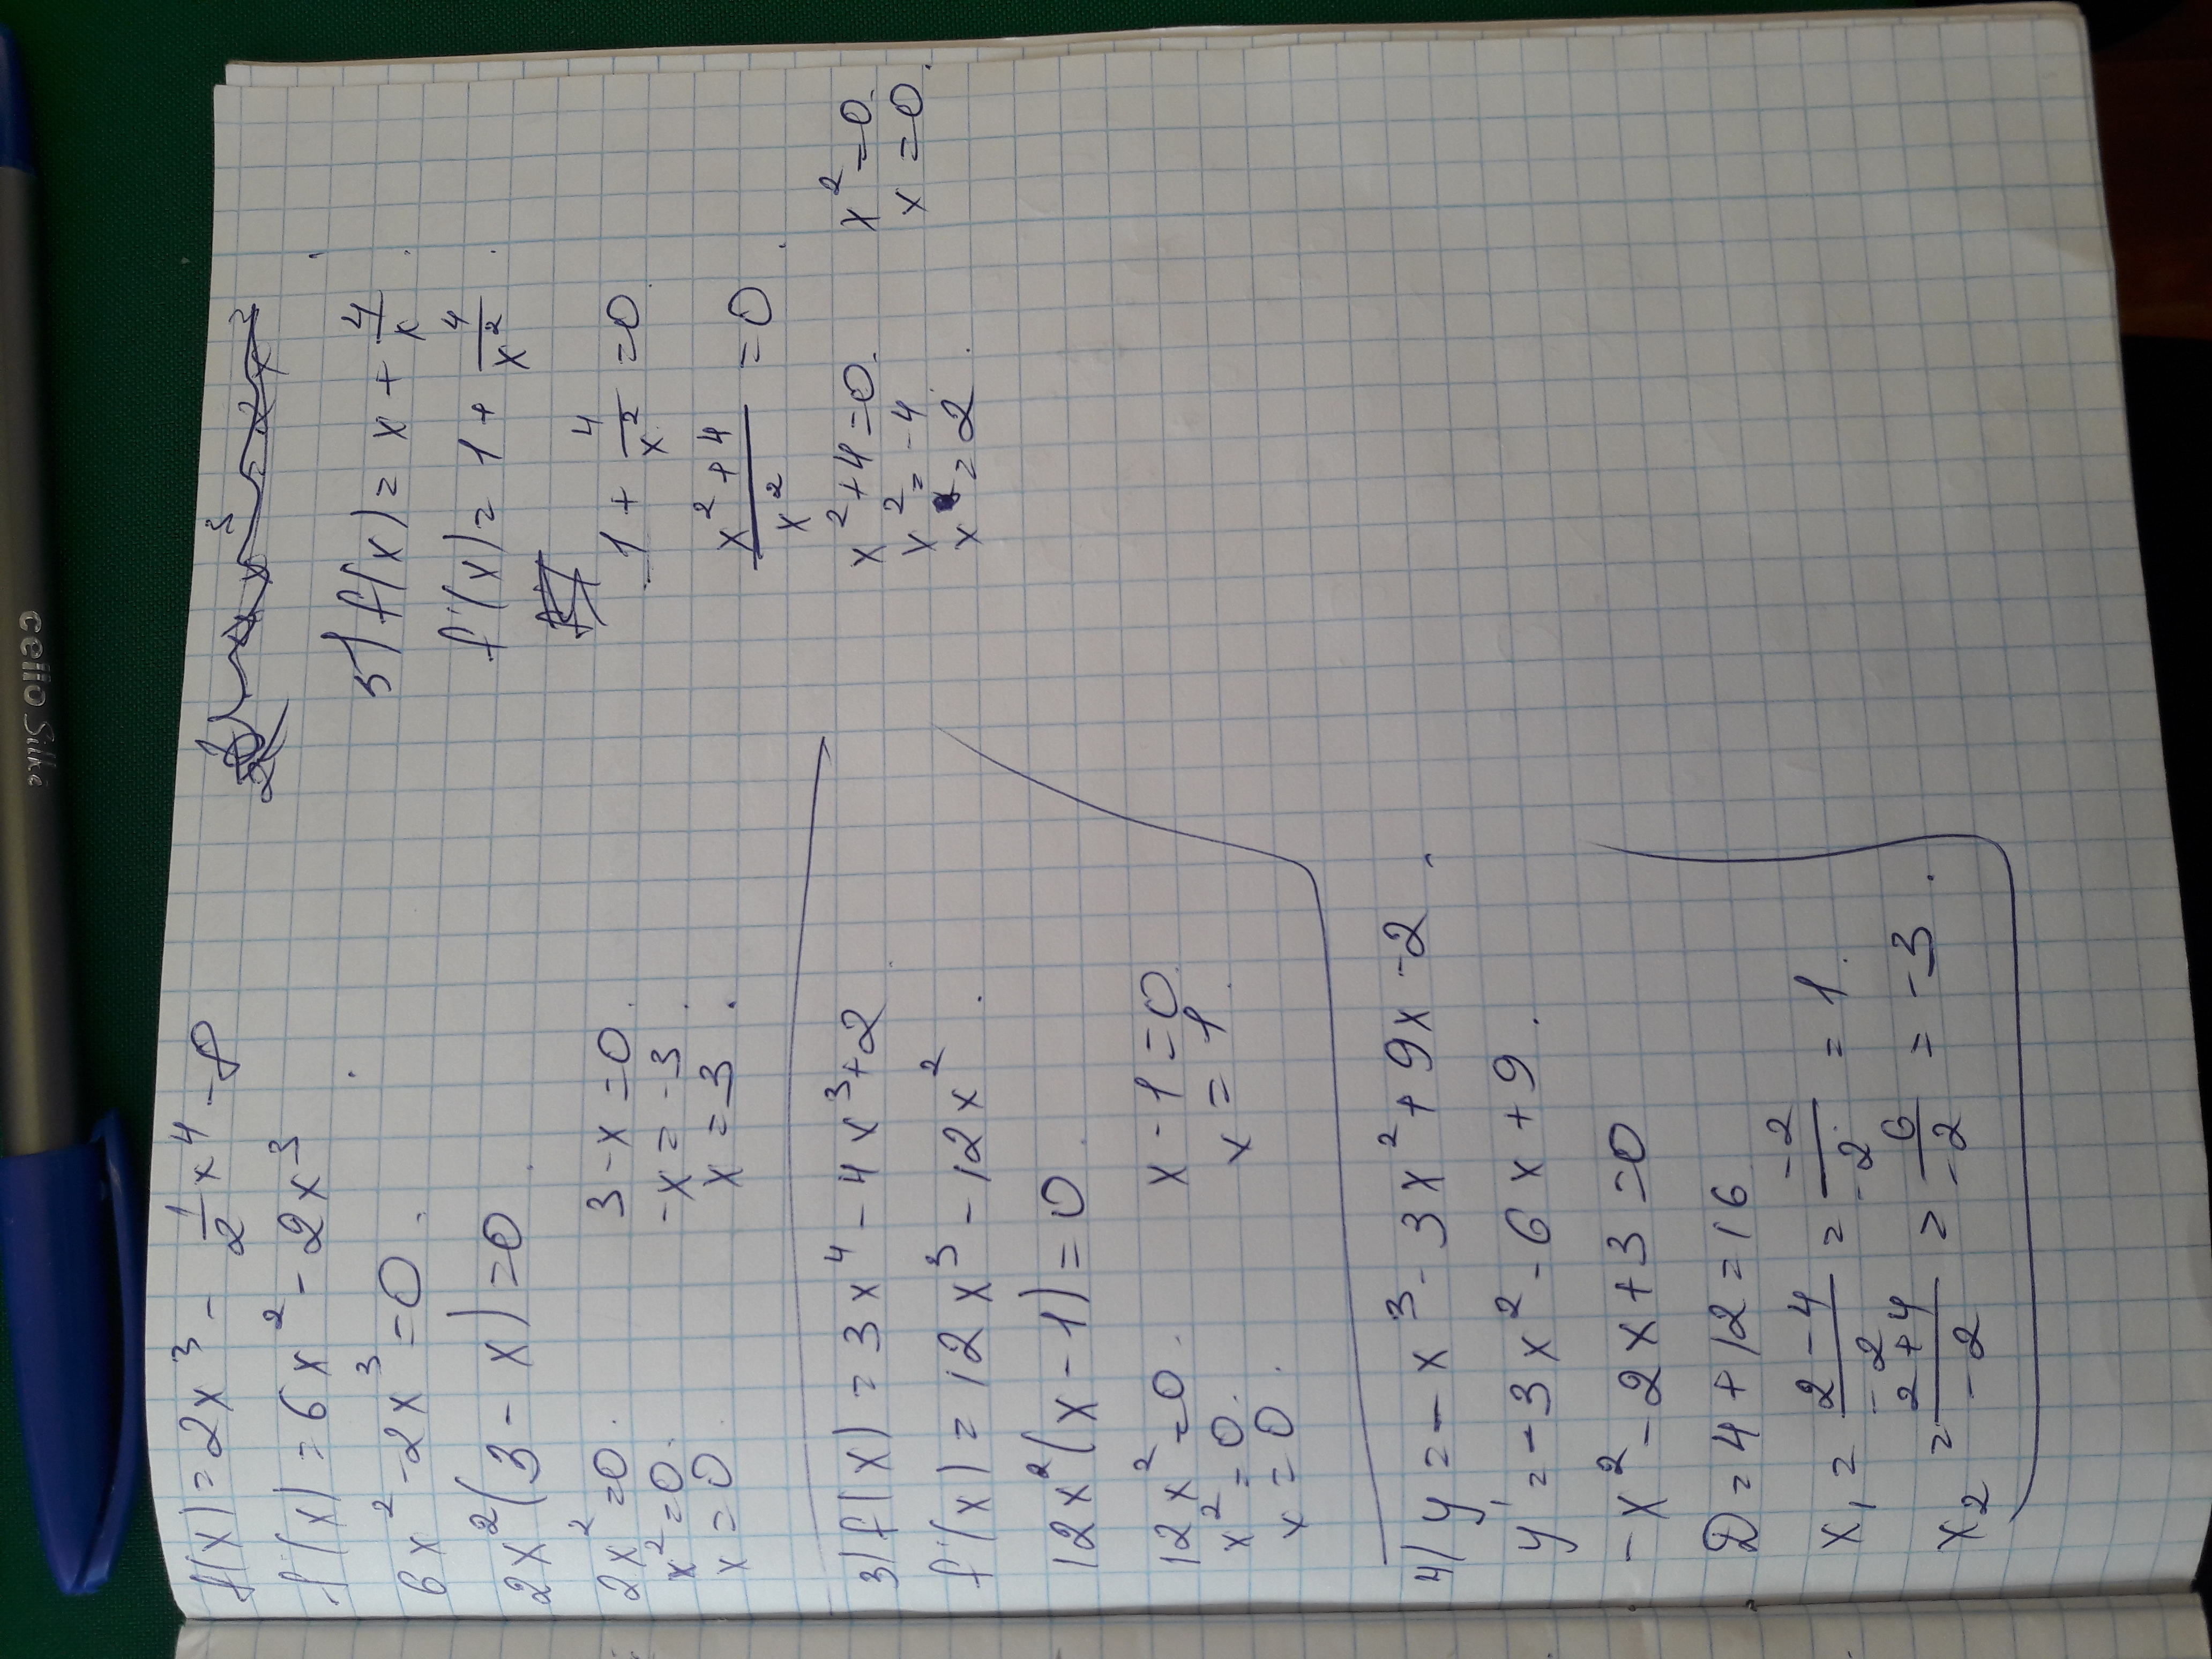 f(x) = 2x³ - 1/2 x⁴ - 8
f'(x) = 6x² - 2x³
6x² - 2x³ = 0.
2x²(3 - x) = 0
2x² = 0. 3 - x = 0.
x² = 0. -x = -3
x = 0 x = 3.
3) f(x) = 3x⁴ - 4x³ + 2
f'(x) = 12x³ - 12x²
12x²(x - 1) = 0
12x² = 0. x - 1 = 0
x² = 0. x = 1
x = 0
4) y = -x³ - 3x² + 9x - 2
y' = -3x² - 6x + 9.
-x² - 2x + 3 = 0
D = 4 + 12 = 16
x₁ = (2 - 4)/-2 = -2/-2 = 1.
x₂ = (2 + 4)/-2 = 6/-2 = -3.
5) f(x) = x + 4/x
f'(x) = 1 + 4/x²
1 + 4/x² = 0
(x² + 4)/x² = 0
x² + 4 = 0. x² = 0.
x² = -4 x = 0.
x = 2.
cello Silke